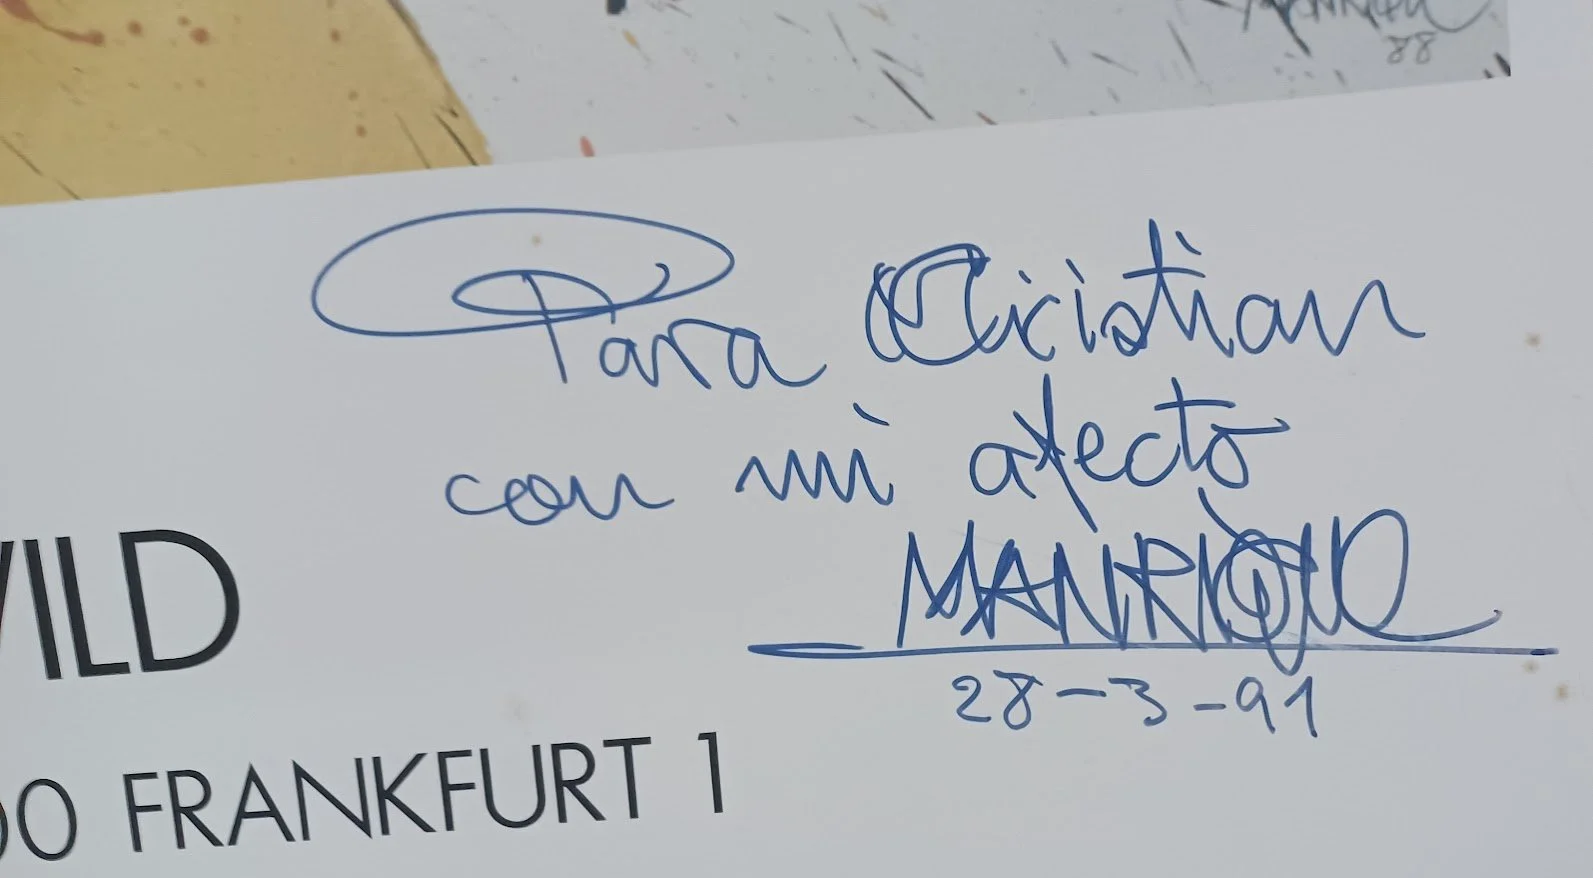 MANRIQUE
88
Para Cristian
con mi afecto
MANRIQUE
28-3-91
WILD
00 FRANKFURT 1